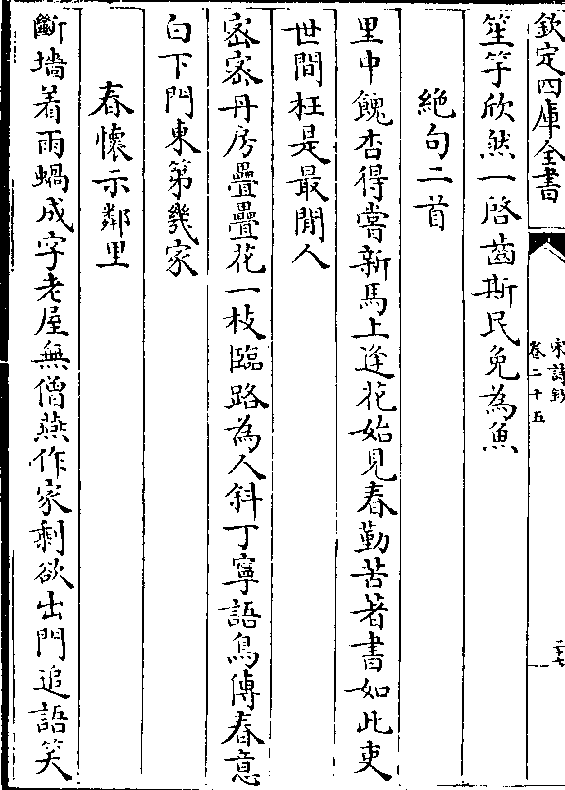 欽定四庫全書
宋詩鈔
卷二十五
二十七
笙竽欣然一啓齒斯民免為魚
絶句二首
里中餽杏得嘗新馬上逢花始見春勤苦著書如此吏
世間枉是最閒人
宻宻丹房疊疊花一枝臨路為人斜丁寧語鳥傳春意
白下門東第幾家
春懷示鄰里
斷墻着雨蝸成字老屋無僧燕作家剩欲出門追語笑